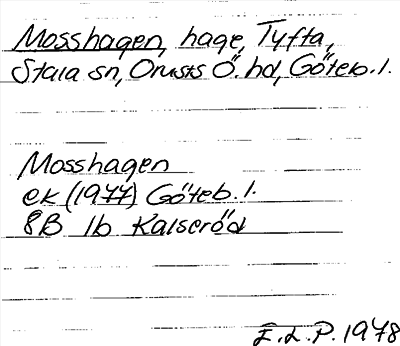 Mosshagen, hage, Tyfta,
Stala sn, Orusts Ö. hd, Göteb. l.
Mosshagen
ek (1977) Göteb. l.
8B 1b Kalseröd
E.L.P. 1978